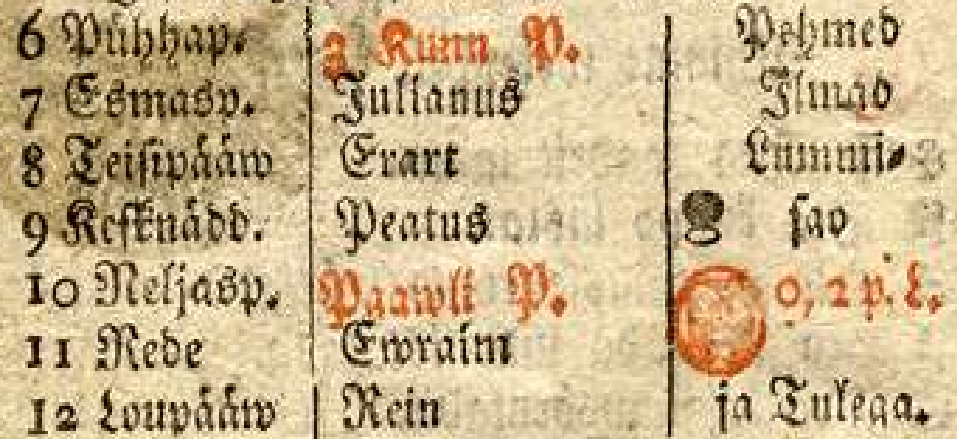 6 Pühhap. 3 Kunn P. Pehmed
7 Esmasp. Julianus Ilmad
8 Teisipääw Erart Lummi-
9 Kesknädd. Peatus sao
10 Neljasp. Paawli P. 0, 2 p. L.
11 Rede Ewraim
12 Loupääw Rein ja Tulega.